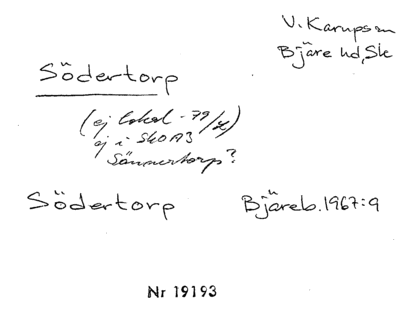 V. Karups sn
Bjäre hd, Sk
Södertorp
(ej lokal. -79/)
ej i SkOA3
Sönnertorp?
Södertorp Bjäreb. 1967:9
Nr 19193